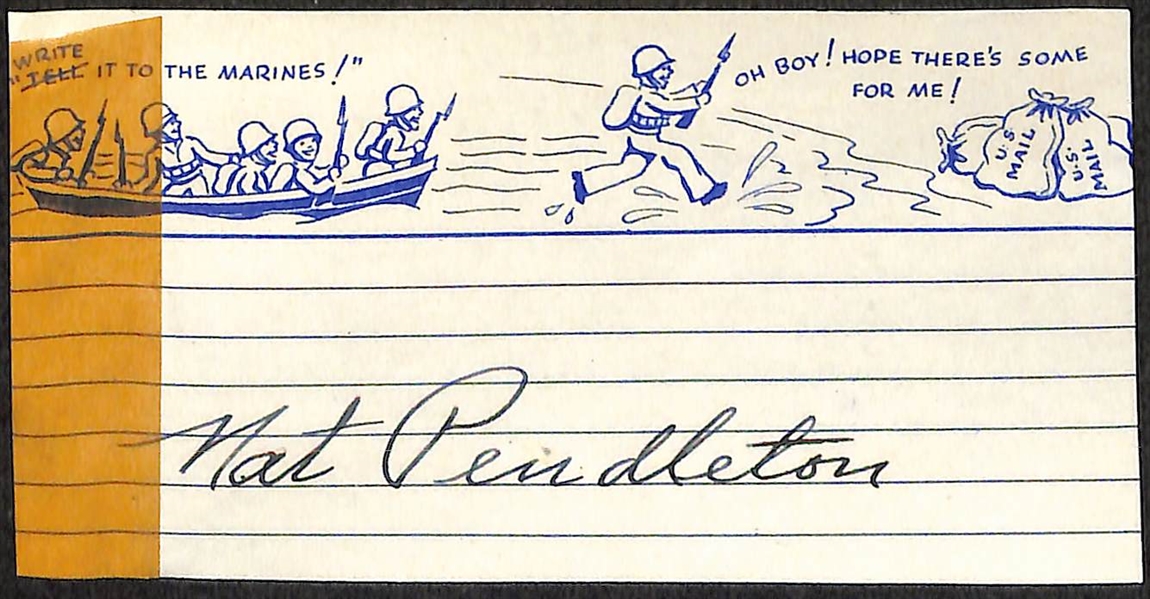 WRITE
"TELL IT TO THE MARINES!"
OH BOY! HOPE THERE'S SOME
FOR ME!
U.S.
MAIL
U.S.
MAIL
Nat Pendleton